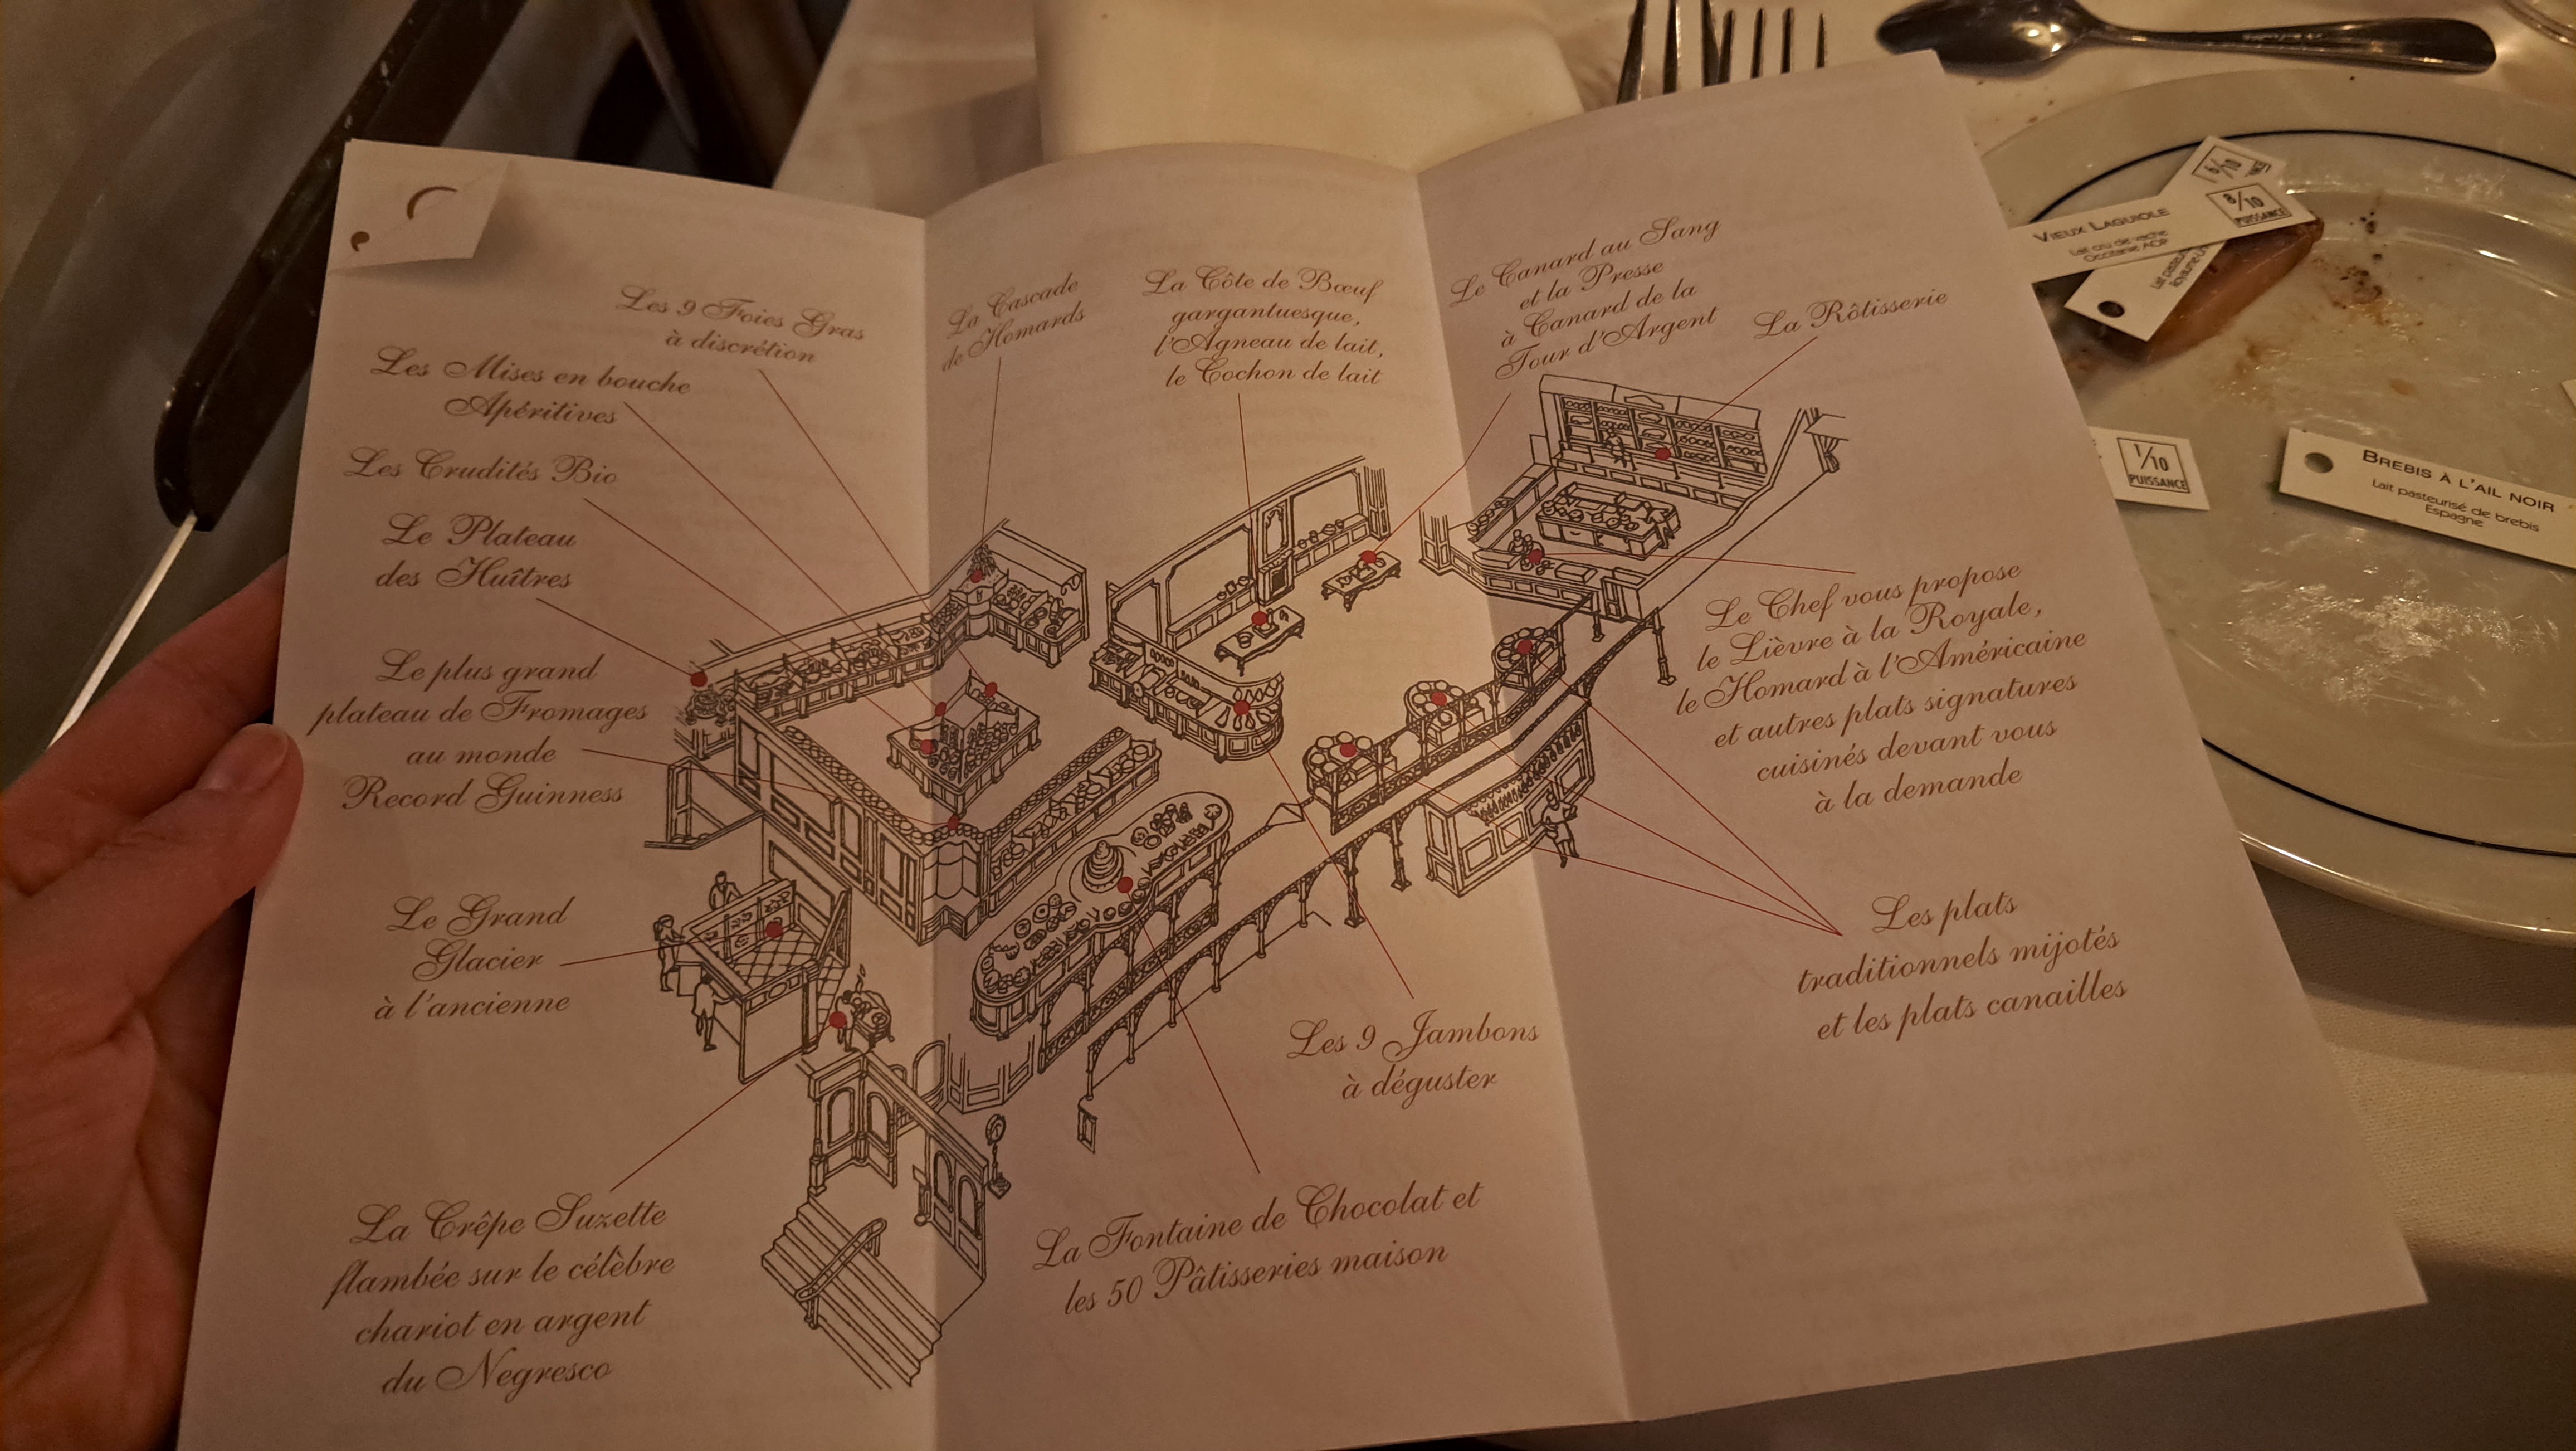 Les 9 Foies Gras
à discrétion
Les Mises en bouche
Apéritives
Les Crudités Bio
Le Plateau
des Huîtres
Le plus grand
plateau de Fromages
au monde
Record Guinness
Le Grand
Glacier
à l'ancienne
La Crêpe Suzette
flambée sur le célèbre
chariot en argent
du Negresco
La Cascade
de Homards
La Côte de Bœuf
gargantuesque,
l'Agneau de lait,
le Cochon de lait
Les 9 Jambons
à déguster
La Fontaine de Chocolat et
les 50 Pâtisseries maison
Le Canard au Sang
et la Presse
à Canard de la
Tour d'Argent
La Rôtisserie
Le Chef vous propose
le Lièvre à la Royale,
le Homard à l'Américaine
et autres plats signatures
cuisinés devant vous
à la demande
Les plats
traditionnels mijotés
et les plats canailles
6/10
VIEUX LAGUIOLE
Lait cru de vache
Occitanie AOP
8/10
PUISSANCE
1/10
PUISSANCE
BREBIS À L'AIL NOIR
Lait pasteurisé de brebis
Espagne